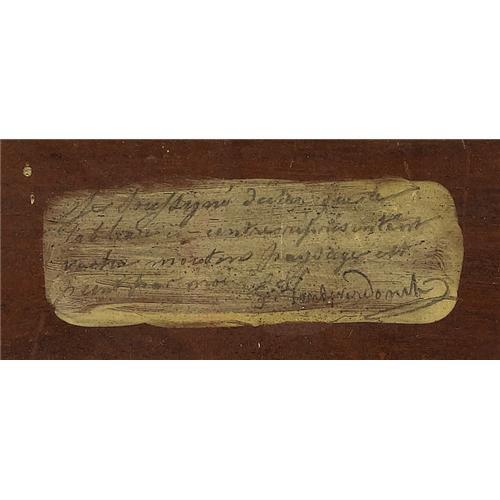 Je Soussigné declare que le
tableau ci contre représentant
moutons paysage est
peint par moi